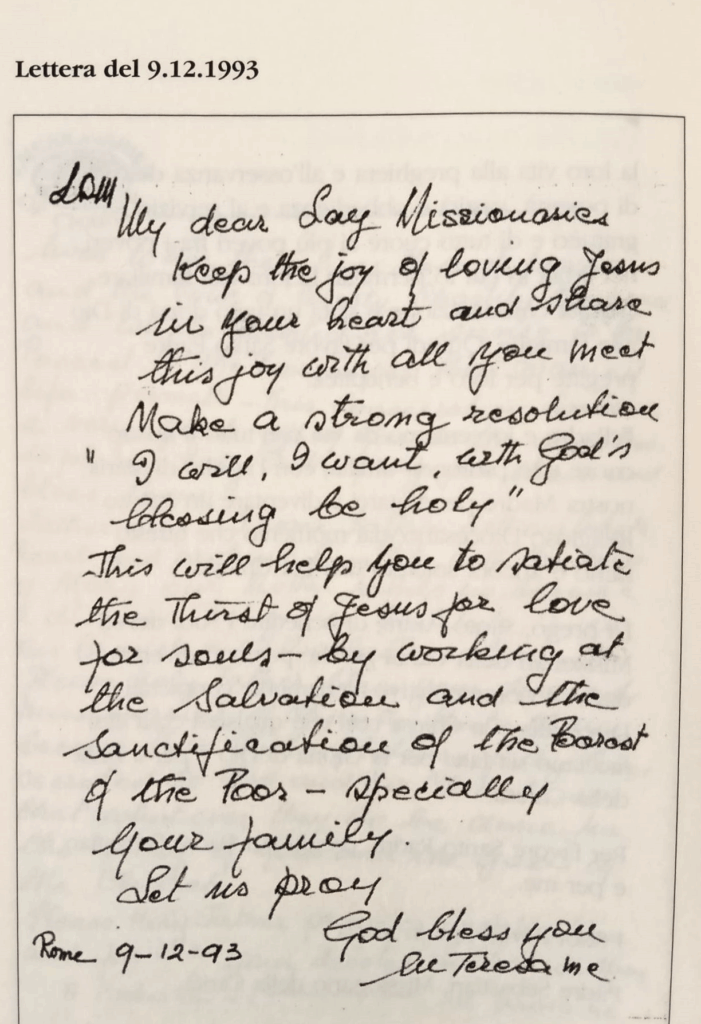 Lettera del 9.12.1993
LDM
My dear Lay Missionaries
Keep the joy of loving Jesus
in your heart and share
this joy with all you meet
Make a strong resolution
" I will, I want, with God's
blessing be holy"
This will help you to satiate
the Thirst of Jesus for love
for souls – by working at
the Salvation and the
Sanctification of the Poorest
of the Poor – specially
your family.
Let us pray
God bless you
Rome 9-12-93
M Teresa mc